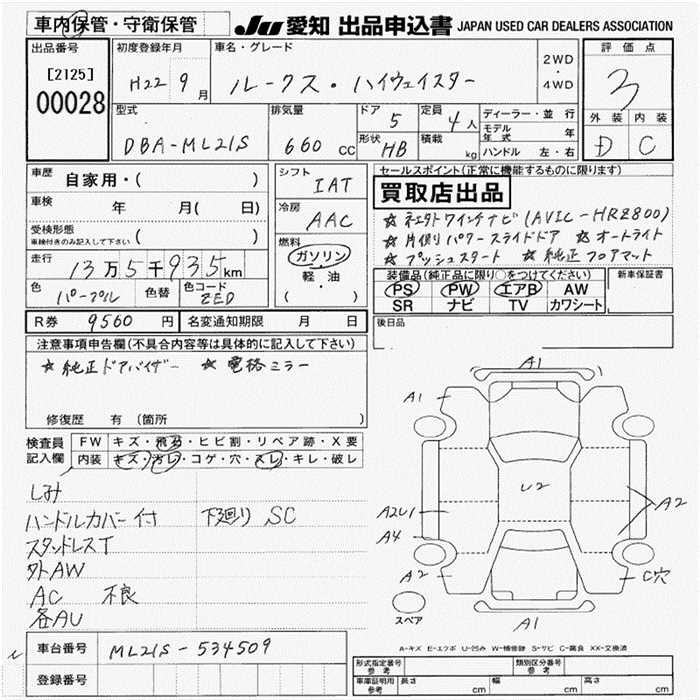 車内保管・守衛保管
JU 愛知 出品申込書 JAPAN USED CAR DEALERS ASSOCIATION
出品番号
[2125]
00028
初度登録年月
H22 9月
車名・グレード
ルークス・ハイウェイスター
2WD
・
4WD
評価点
3
外装 内装
D C
型式
DBA-ML21S
排気量
660 cc
ドア 5
形状 HB
定員 4人
積載 kg
ディーラー・並行
モデル年式 年
ハンドル 左・右
車歴 自家用・( )
車検 年 月( 日)
受検形態
車検付きのみ記入して下さい ( )
走行 13万5千935km
色 パープル 色替 色コード ZED
シフト IAT
冷房 AAC
燃料
ガソリン
軽・油
( )
セールスポイント(正常に機能するものに限ります)
買取店出品
☆ 片側パワースライドドア ☆ オートライト
☆ プッシュスタート ☆ 純正フロアマット
装備品(純正品に限り○をつけてください)
PS PW エアB AW
SR ナビ TV カワシート
新車保証書
後日品
R券 9560円 名変通知期限 月 日
注意事項申告欄(不具合内容等は具体的に記入して下さい)
☆ 純正ドアバイザー ☆ 電格ミラー
修復歴 有 (箇所 )
検査員記入欄
FW キズ・飛石・ヒビ割・リペア跡・X要
内装 キズ・汚レ・コゲ・穴・スレ・キレ・破レ
しみ
ハンドルカバー付 下廻り SC
スタッドレスT
外AW
AC 不良
各AU
A1
A1
U2
A2U1
A2
A4
A2
C穴
スペア
A1
A-キズ E-エクボ U-凹み W-補修跡 S-サビ C-腐食 XX-交換済
車台番号 ML21S-534509
登録番号
形式指定番号 参考
類別区分番号 参考
車庫証明用 参考 長さ cm 幅 cm 高さ cm